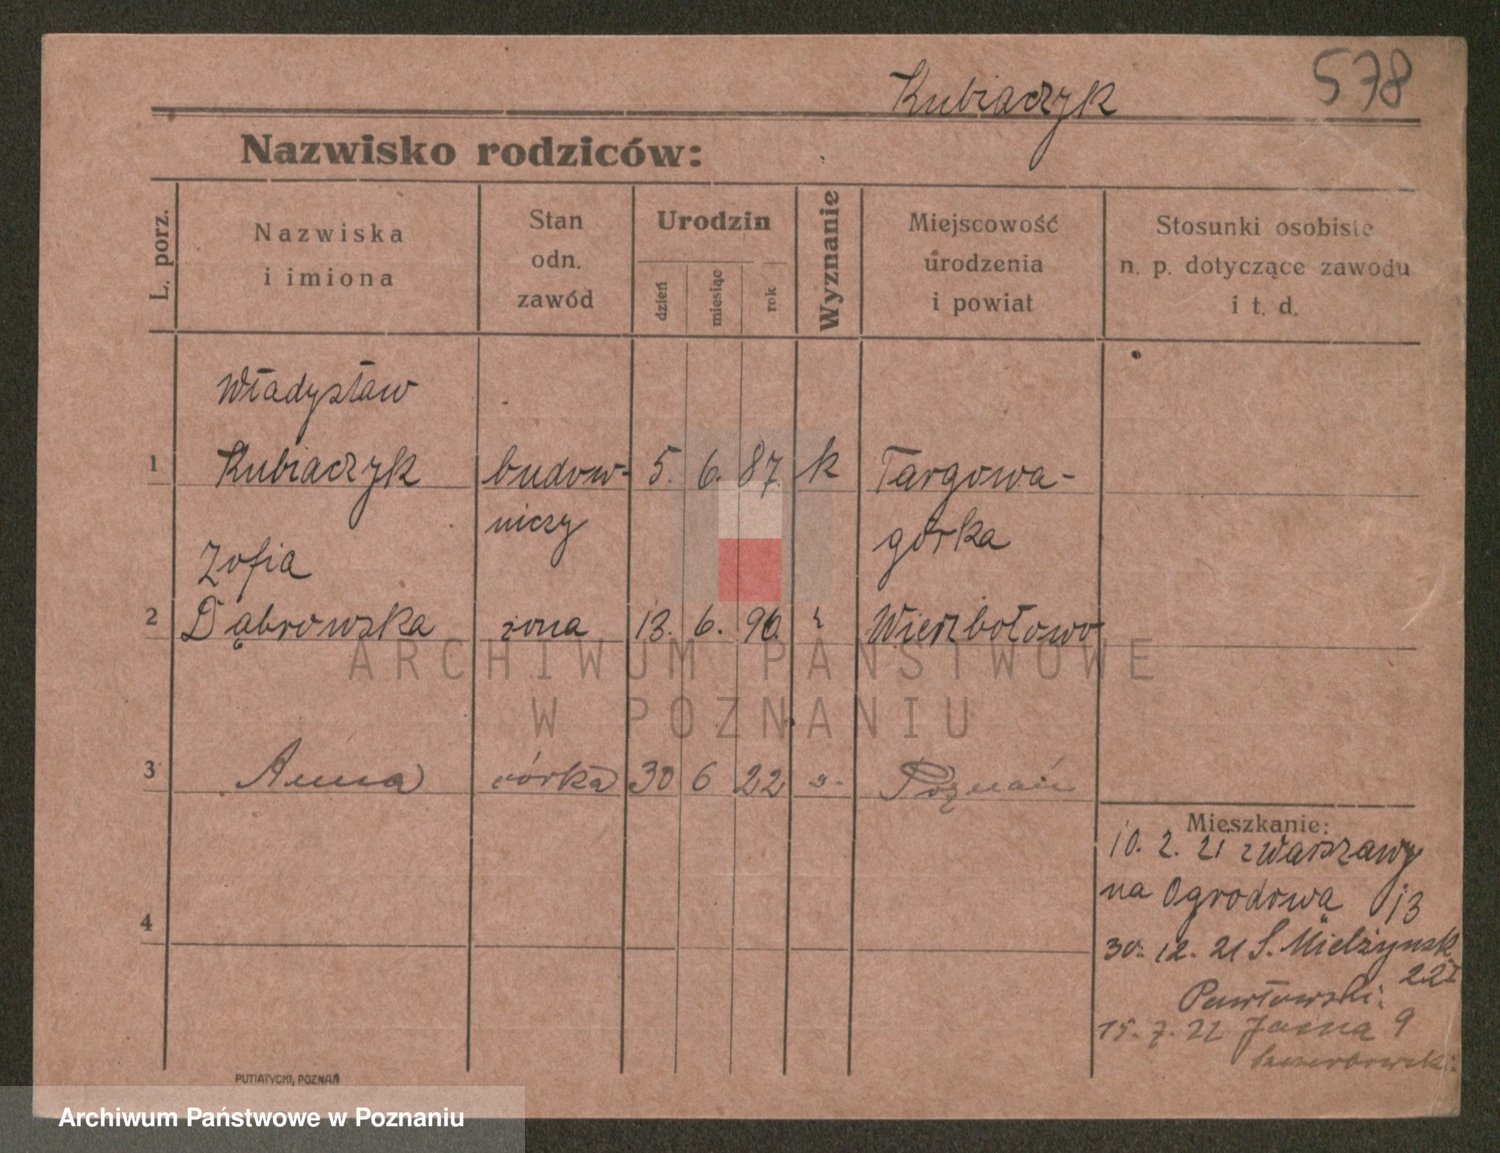 Kubiaczyk
578
Nazwisko rodziców:
L. porz.
Nazwiska
i imiona
Stan
odn.
zawód
Urodzin
dzień
miesiąc
rok
Wyznanie
Miejscowość
urodzenia
i powiat
Stosunki osobiste
n. p. dotyczące zawodu
i t. d.
Władysław
1 Kubiaczyk budow- 5. 6. 87 k Targowa-
niczy górka
Zofia
2 Dąbrowska żona 13. 6. 90. Wierzbołowo
3 Anna córka 30 6 22 Poznań
Mieszkanie:
10. 2. 21 z Warszawy
na Ogrodowa 13
4
30. 12. 21 S. Mielżyńsk.
22I
Pawłowski.
15. 7. 22 Jasna 9
PUTIATYCKI, POZNAŃ
ARCHIWUM PAŃSTWOWE
W POZNANIU
Archiwum Państwowe w Poznaniu